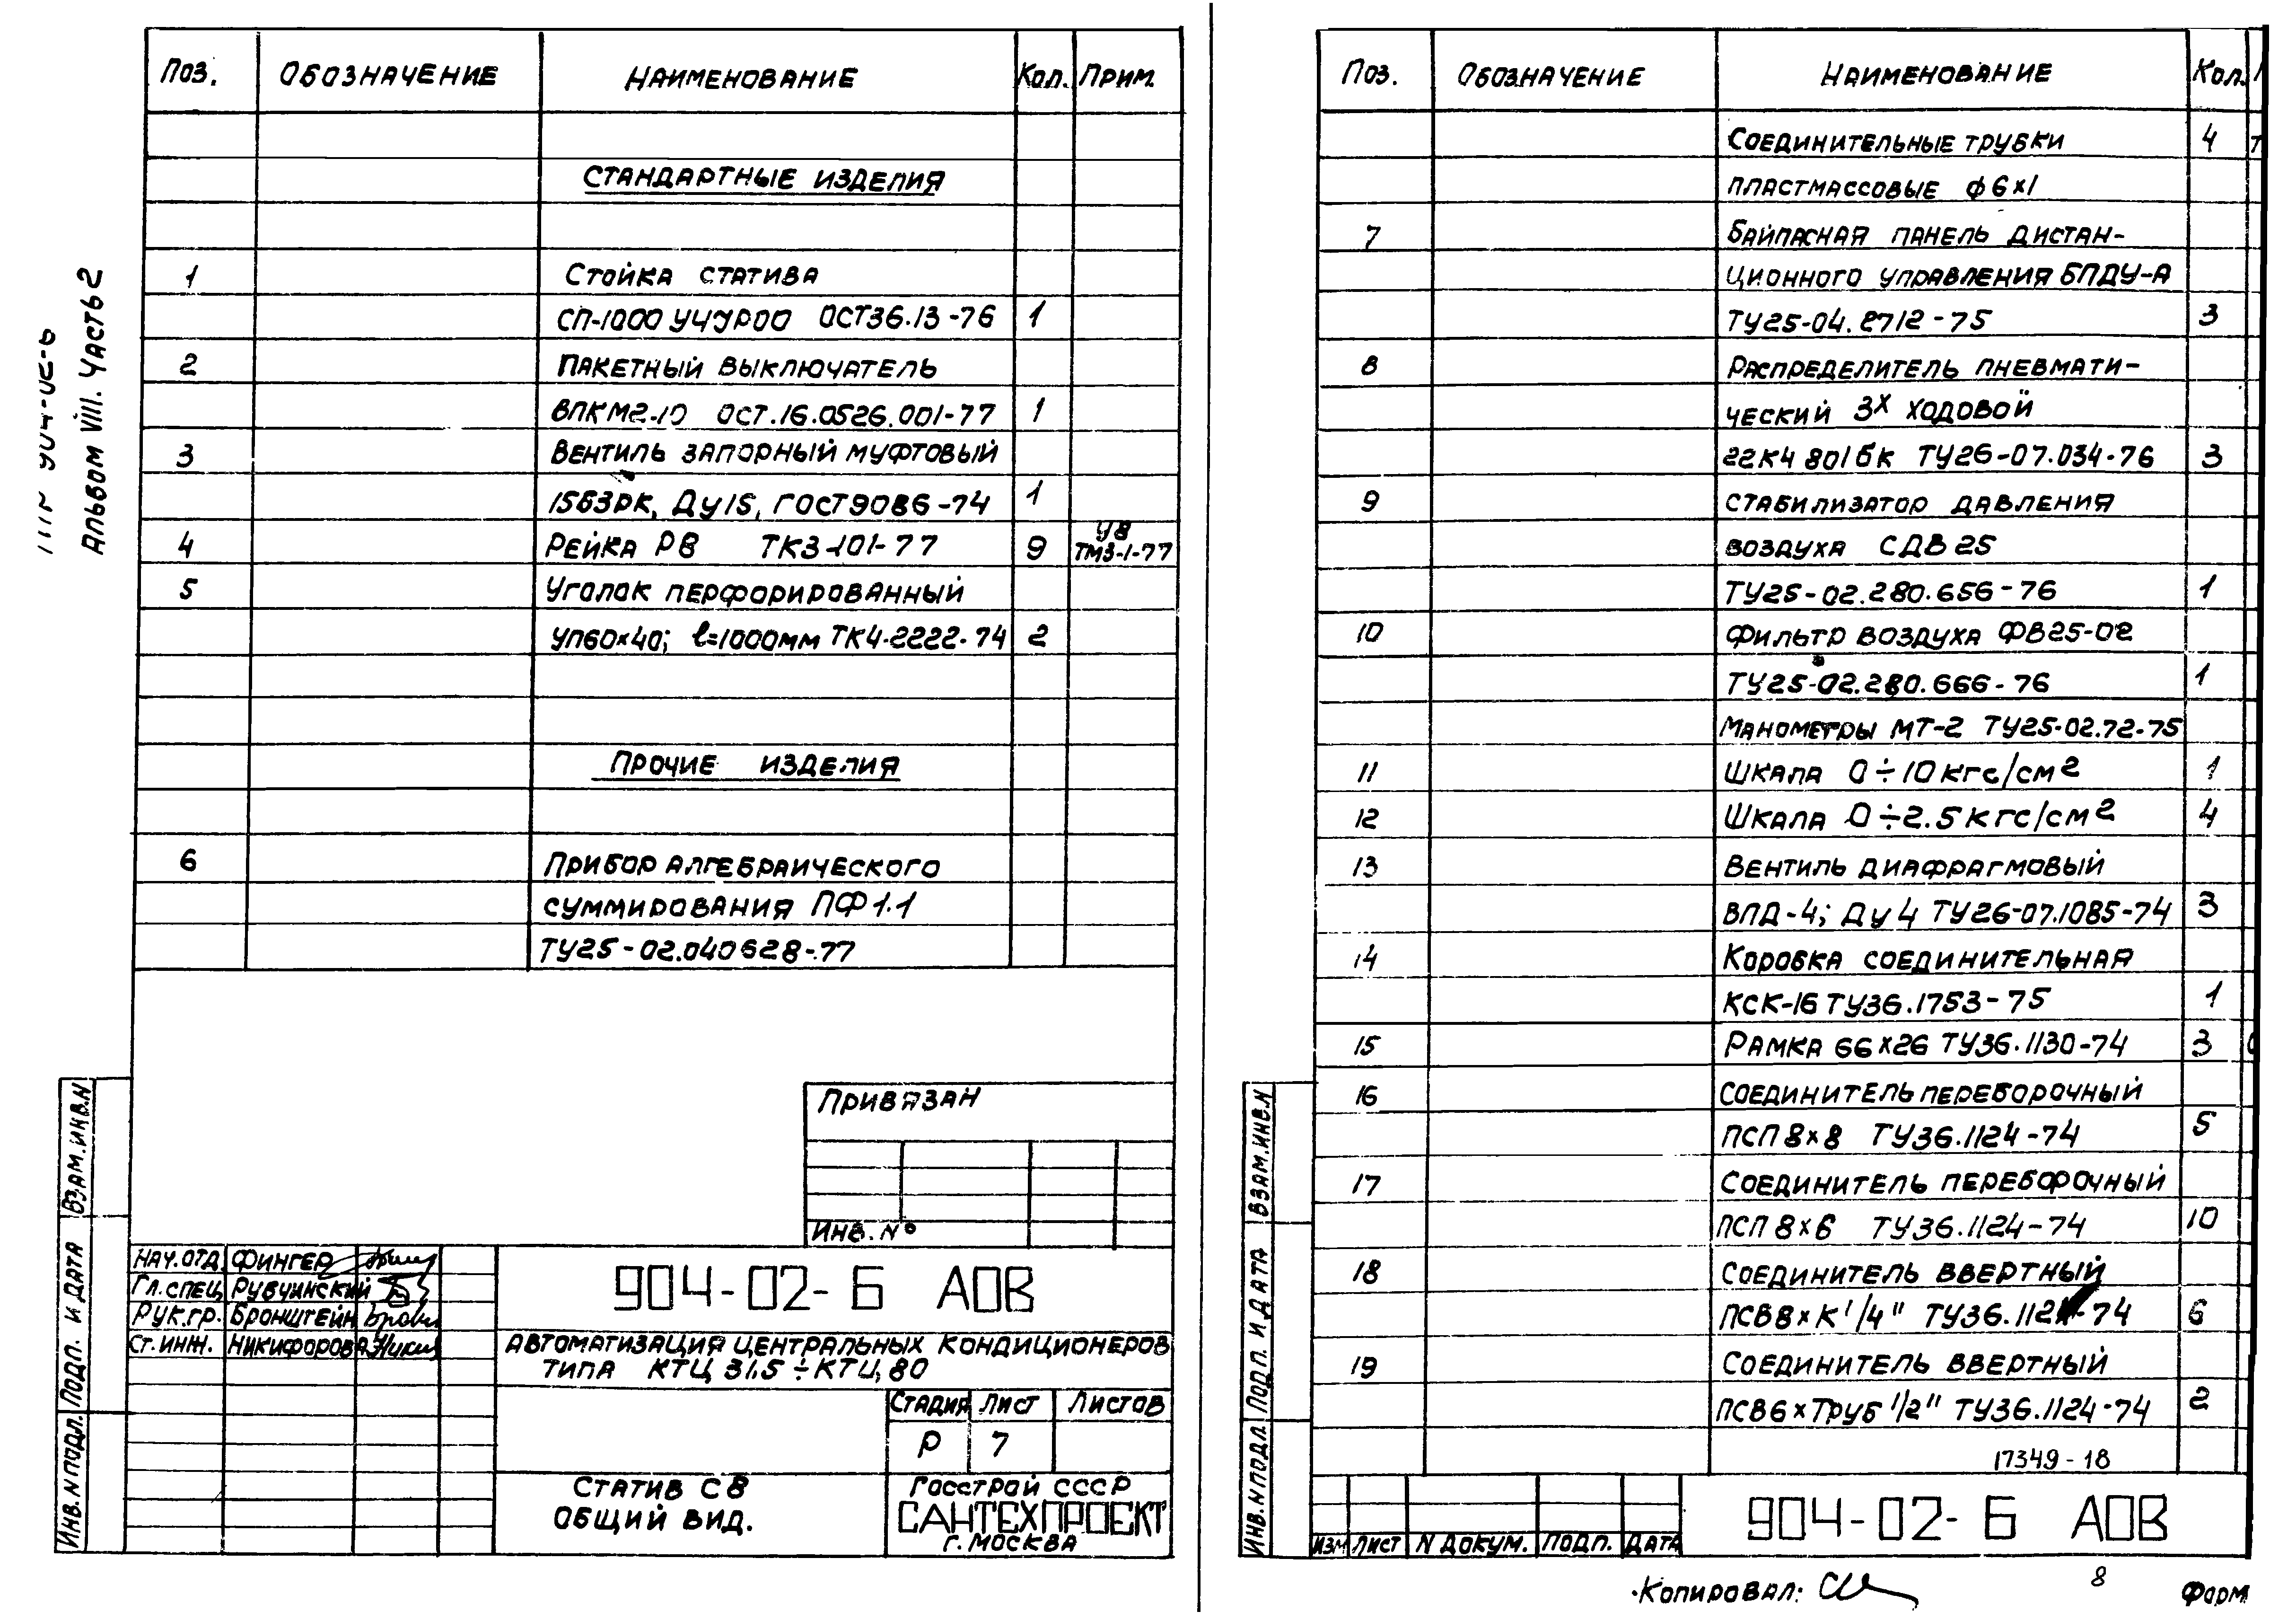 Альбом VIII. Часть 2
Поз. Обозначение Наименование Кол. Прим.
Стандартные изделия
1 Стойка статива
СП-1000 УЧУР00 ОСТ36.13-76 1
2 Пакетный выключатель
ВПКМ2-10 ОСТ.16.0526.001-77 1
3 Вентиль запорный муфтовый
15Б3рк, Ду15, ГОСТ9086-74 1
4 Рейка РВ ТК3-101-77 9 УВ
ТМ3-1-77
5 Уголок перфорированный
УП60×40; l=1000мм ТК4-2222-74 2
Прочие изделия
6 Прибор алгебраического
суммирования ПФ1.1
ТУ25-02.040628-77
Привязан
Инв. №
Нач.отд. Фингер
Гл.спец. Рубчинский
Рук.гр. Бронштейн
Ст.инж. Никифорова
904-02-Б АОВ
Автоматизация центральных кондиционеров
типа КТЦ 31.5÷КТЦ 80
Стадия Лист Листов
Р 7
Статив СВ
Общий вид.
Госстрой СССР
САНТЕХПРОЕКТ
г. Москва
Взам.инв.N
Подп. и дата
Инв.N подл.
Поз. Обозначение Наименование Кол.
Соединительные трубки 4
пластмассовые ф6×1
7 Байпасная панель дистан-
ционного управления БПДУ-А
ТУ25-04.2712-75 3
8 Распределитель пневмати-
ческий 3х ходовой
22К4 801бк ТУ26-07.034-76 3
9 Стабилизатор давления
воздуха СДВ25
ТУ25-02.280.656-76 1
10 Фильтр воздуха ФВ25-02
ТУ25-02.280.666-76 1
Манометры МТ-2 ТУ25-02.72-75
11 Шкала 0÷10кгс/см2 1
12 Шкала 0÷2.5кгс/см2 4
13 Вентиль диафрагмовый
ВПД-4; Ду4 ТУ26-07.1085-74 3
14 Коробка соединительная
КСК-16 ТУ36.1753-75 1
15 Рамка 66×26 ТУ36.1130-74 3
16 Соединитель переборочный
ПСП8×8 ТУ36.1124-74 5
17 Соединитель переборочный
ПСП8×6 ТУ36.1124-74 10
18 Соединитель ввертный
ПСВ8×К1/4" ТУ36.1124-74 6
19 Соединитель ввертный
ПСВ6×Труб1/2" ТУ36.1124-74 2
17349-18
Изм Лист N докум. Подп. Дата
904-02-Б АОВ
Взам.инв.N
Подп. и дата
Инв.N подл
8
Копировал:
Форм